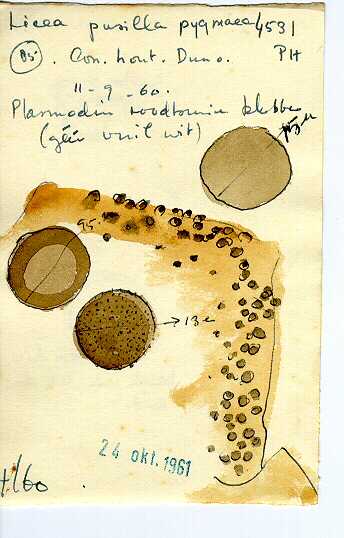 Licea pusilla pygmaea 4531
85. Con. hout. Duno. PH
11-9-60.
Plasmodium roodbruin
(géén vuil wit)
95
→13
24 okt. 1961
/60